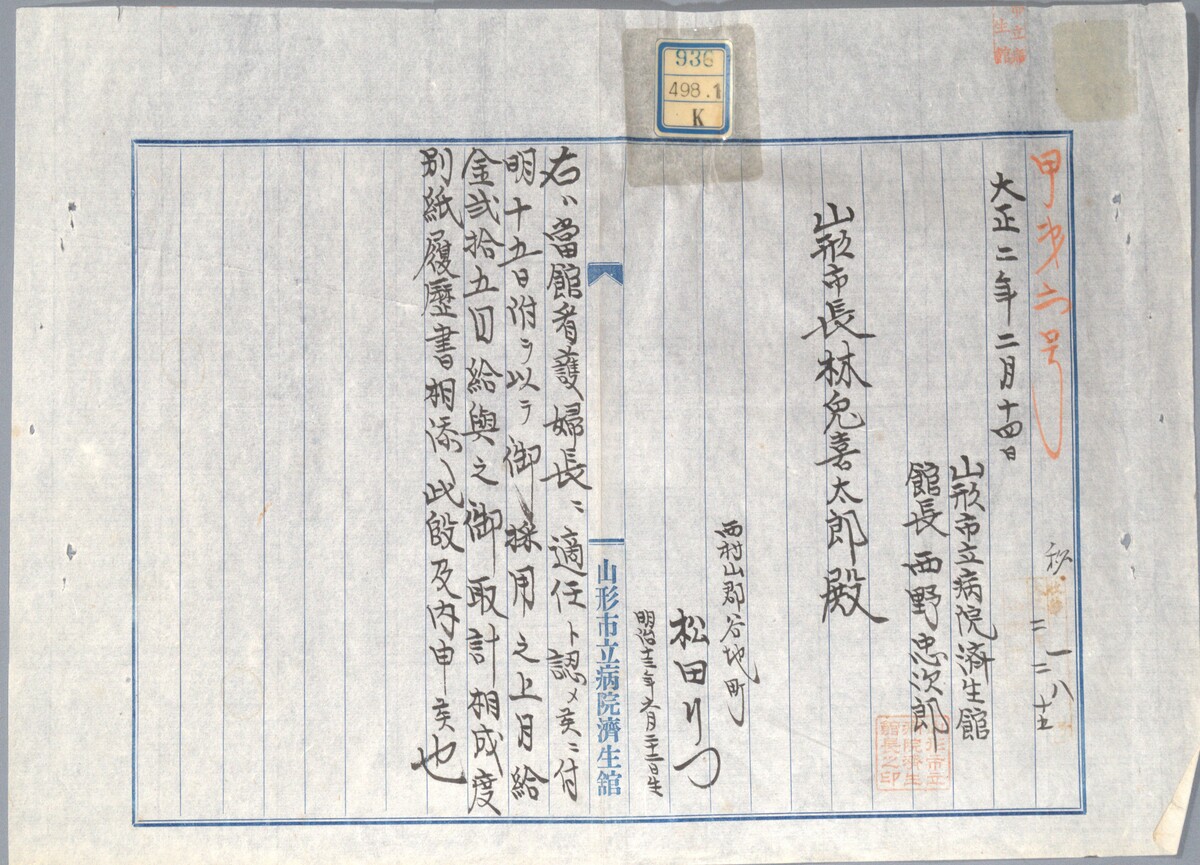 936
498.1
K
甲第六号
大正二年二月十四日
山形市立病院済生館
館長西野忠次郎
山形市立病院済生館長之印
山形市長林兔喜太郎殿
西村山郡谷地町
松田りつ
明治十三年六月二十二日生
山形市立病院濟生舘
右ハ當館看護婦長ニ適任ト認メ候ニ付
明十五日附ヲ以テ御採用之上月給
金弐拾五円給與之御取計相成度
別紙履歴書相添ヘ此段及内申候也